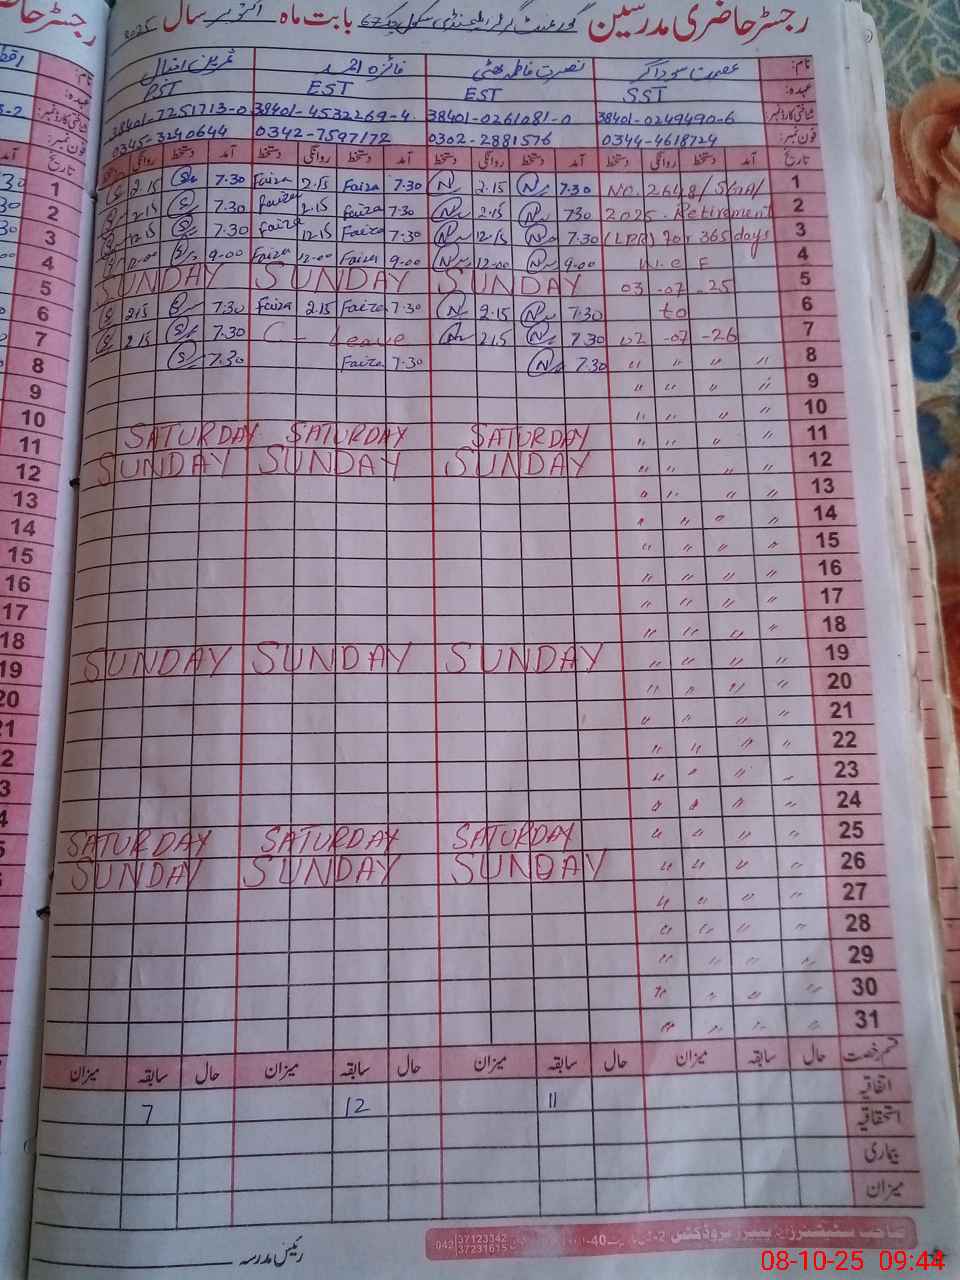 رجسٹر حاضری مدرسین گورنمنٹ گرلز ایلیمنٹری سکول چک 67 بابت ماہ اکتوبر سال 2025
نام: عصمت سوداگر نصرت فاطمہ بھٹی فائزہ احمد
عہدہ: SST EST EST PST
شناختی کارڈ نمبر: 38401-0249490-6 38401-0261081-0 38401-4532269-4 38401-7251713-0
فون نمبر: 0344-4618724 0302-2881576 0342-7597172 0345-3240644
تاریخ آمد دستخط روانگی دستخط آمد دستخط روانگی دستخط آمد دستخط روانگی دستخط آمد دستخط روانگی دستخط
2.15 7.30 Faiza 2.15 Faiza 7.30 N 2.15 N 7.30 NO. 1
2.15 7.30 Faiza 2.15 Faiza 7.30 N 2.15 N 730 2025. Retirement 2
12.15 7.30 Faiza 12.15 Faiza 7.30 N 12.15 N 7.30 (LPR) for 365 days 3
12.00 9.00 Faiza 12.00 Faiza 9.00 N 12.00 N 9.00 w.e.f 4
SUNDAY SUNDAY SUNDAY 03 -07 -25 5
S 2.15 S 7.30 Faiza 2.15 Faiza 7.30 N 2.15 N 7.30 to 6
S 2.15 S 7.30 C - Leave 2.15 N 7.30 02 -07 -26 7
S 7.30 Faiza 7.30 N 7.30 " " " " 8
" " " " 9
" " " " 10
SATURDAY SATURDAY SATURDAY " " " " 11
SUNDAY SUNDAY SUNDAY " " " " 12
" " " " 13
" " " " 14
" " " " 15
" " " " 16
" " " " 17
" " " " 18
SUNDAY SUNDAY SUNDAY " " " " 19
" " " " 20
" " " " 21
" " " " 22
" " " " 23
" " " " 24
SATURDAY SATURDAY SATURDAY " " " " 25
SUNDAY SUNDAY SUNDAY " " " " 26
" " " " 27
" " " " 28
" " " " 29
" " " " 30
" " " " 31
قسم رخصت حال سابقہ میزان حال سابقہ میزان حال سابقہ میزان حال سابقہ میزان
اتفاقیہ 11 12 7
استحقاقیہ
بیماری
میزان
رئیس مدرسہ
042 37123342
37231615
08-10-25 09:44